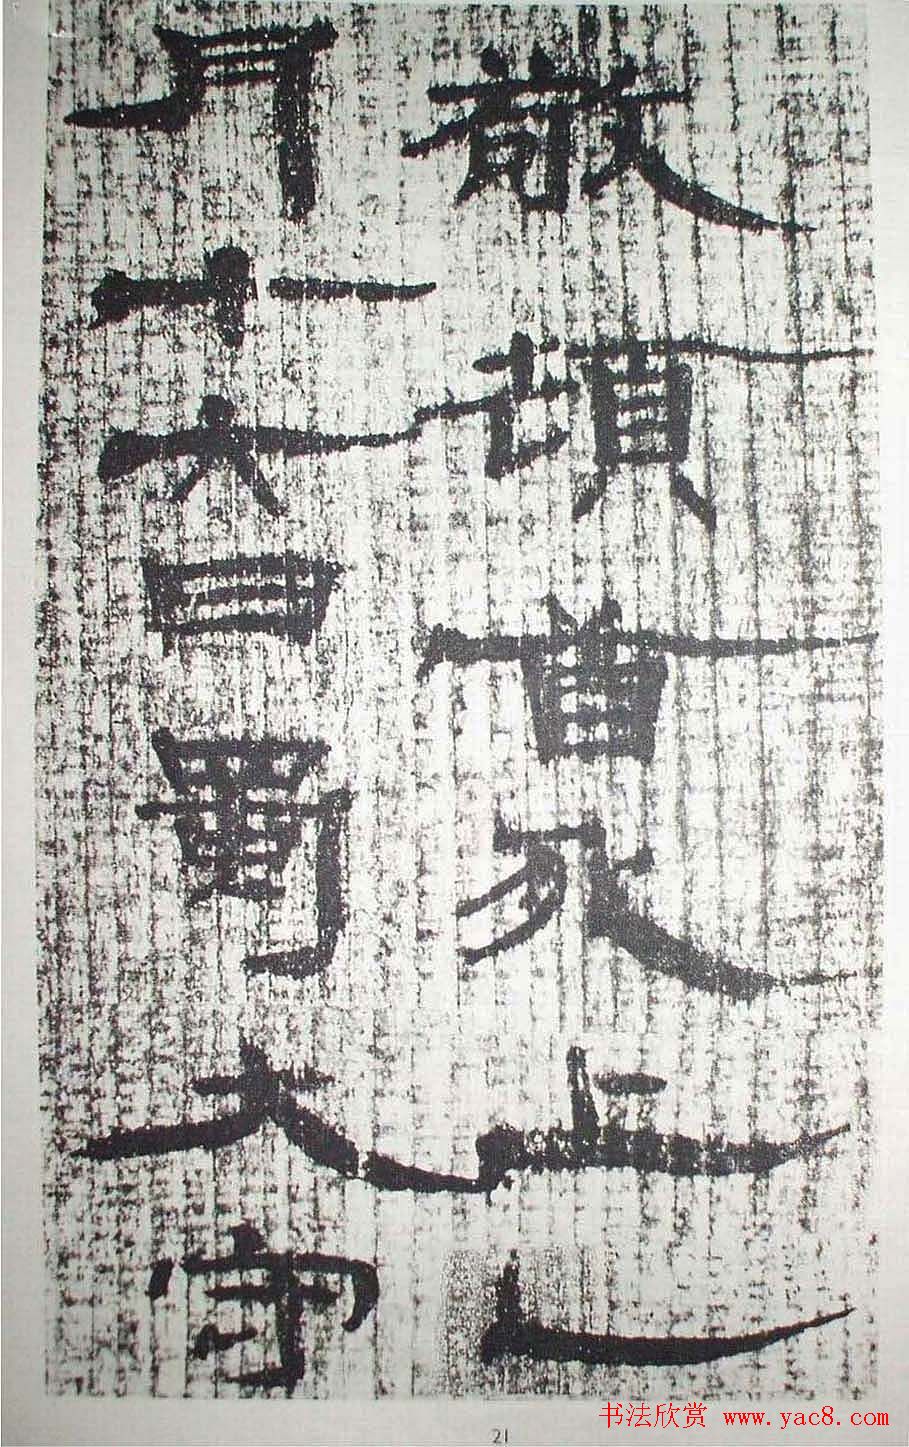 敢頓首死上
月十六日蜀大守
21
书法欣赏 www.yac8.com